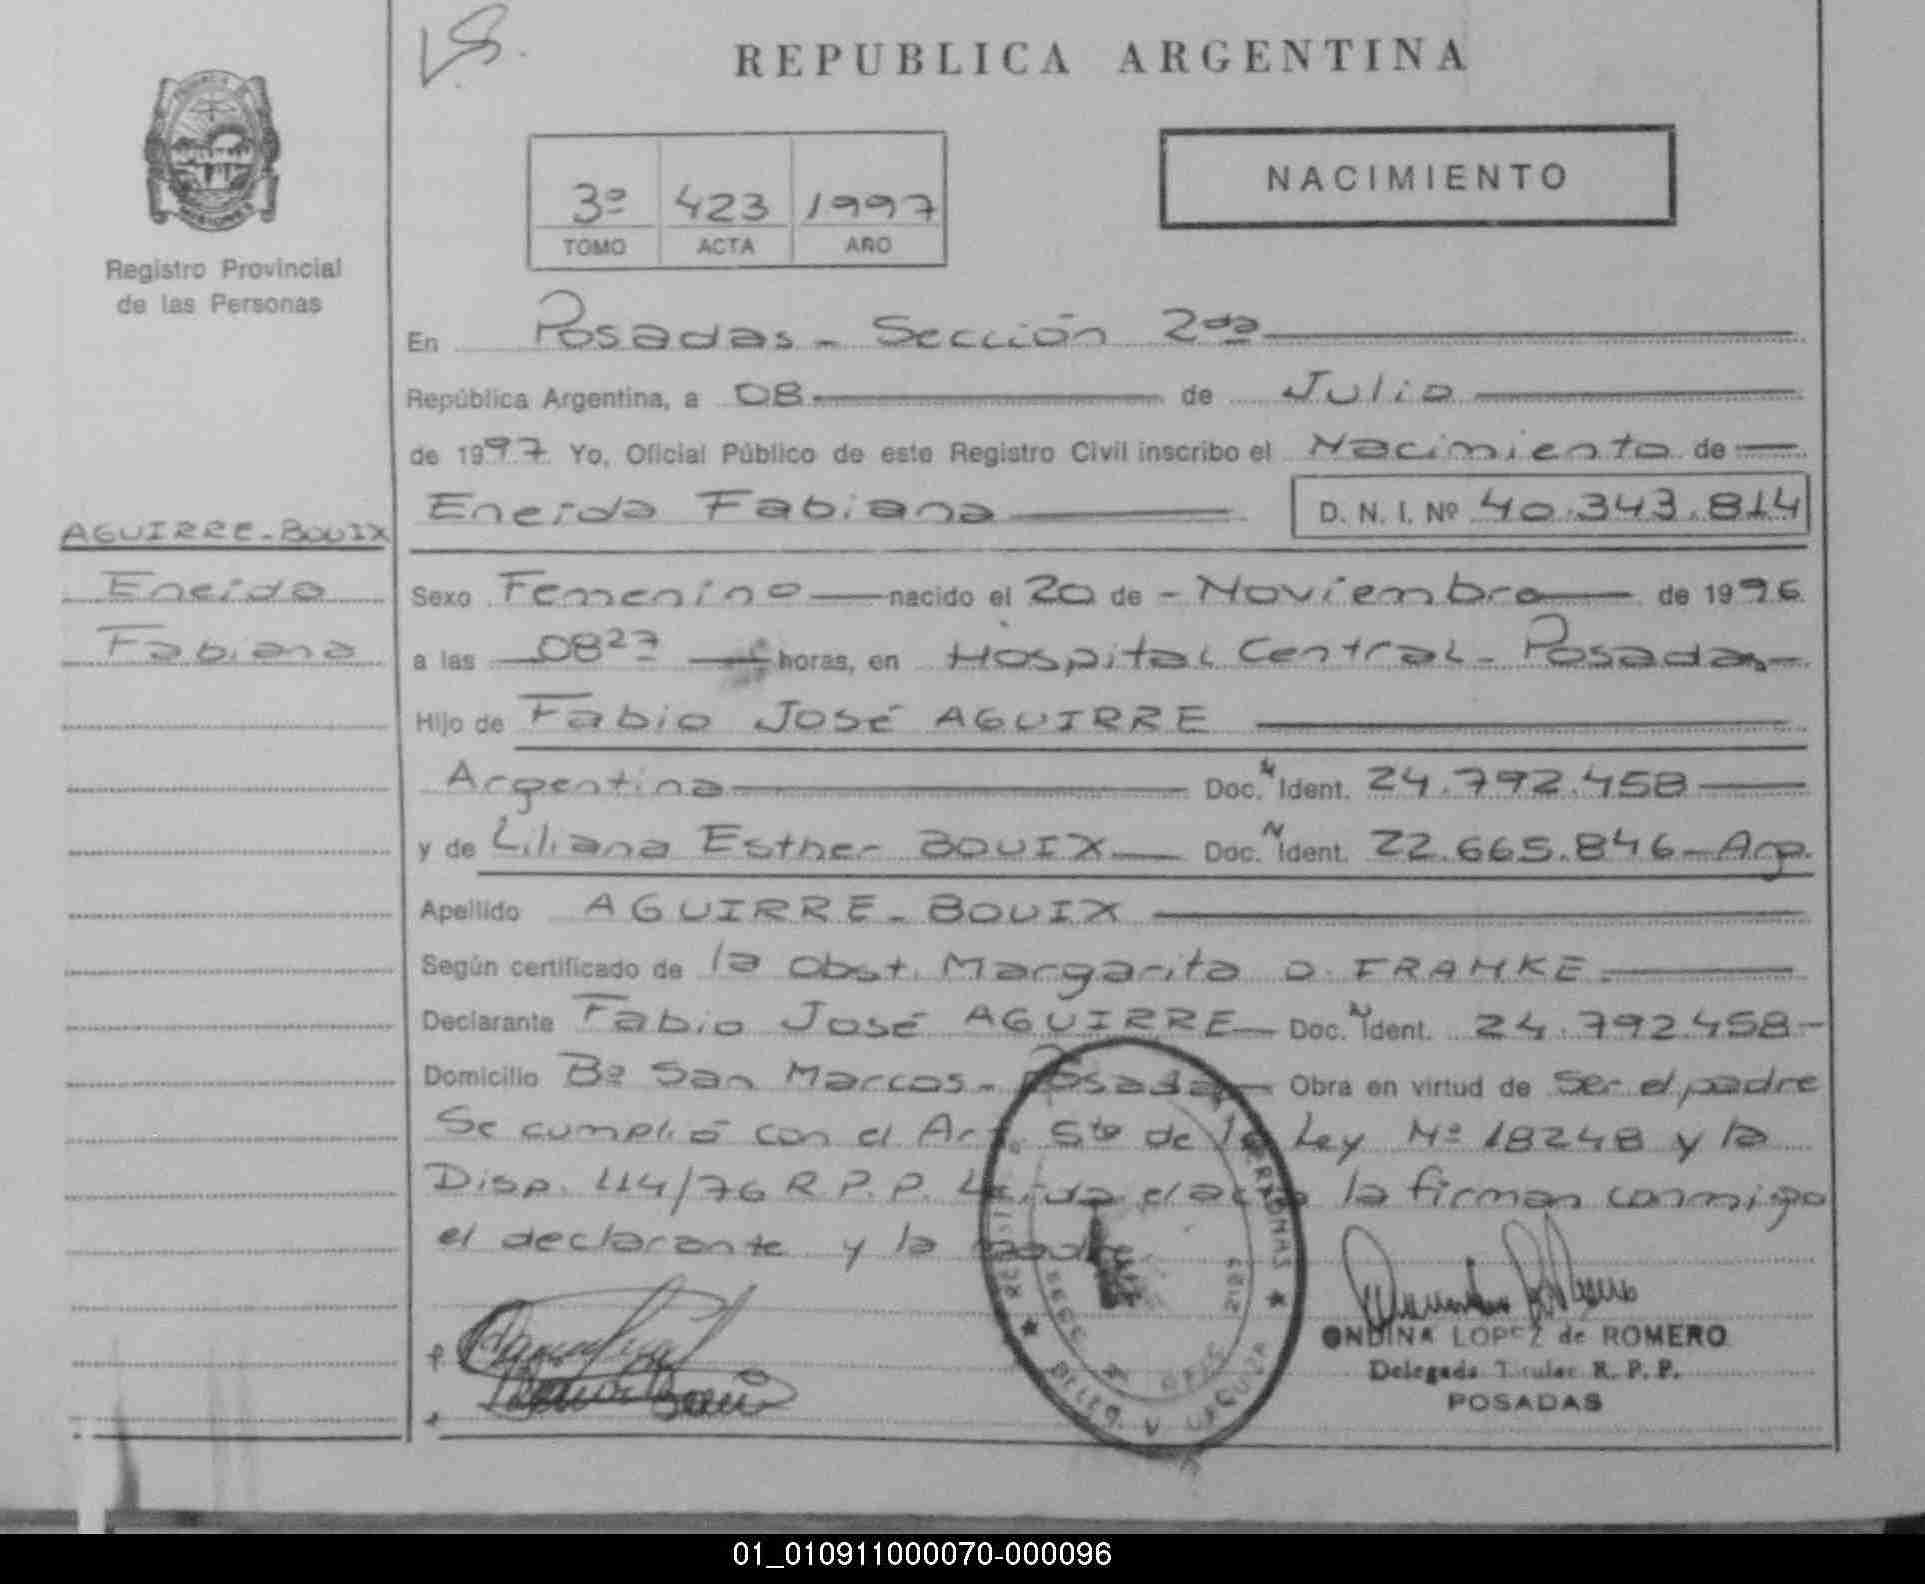 REPUBLICA ARGENTINA
NACIMIENTO
3º 423 1997
TOMO ACTA AÑO
MISIONES
Registro Provincial
de las Personas
En Posadas - Sección 2da
República Argentina, a 08 de Julio
de 1997 Yo, Oficial Público de este Registro Civil inscribo el Nacimiento de
Eneida Fabiana D. N. I. Nº 40.343.814
AGUIRRE-BOUIX
Eneida
Fabiana
Sexo Femenino nacido el 20 de - Noviembre de 1996
a las 0827 horas, en Hospital Central - Posadas
Hijo de Fabio José AGUIRRE
Argentina Doc. N Ident. 24.792.458
y de Liliana Esther BOUIX Doc. N Ident. 22.665.846 - Arg.
Apellido AGUIRRE - BOUIX
Según certificado de la Obst. Margarita D. FRANKE
Declarante Fabio José AGUIRRE Doc. N Ident. 24.792.458 -
Domicilio Bº San Marcos - Posadas Obra en virtud de ser el padre
Se cumplió con el Art. 5to de la Ley Nº 18248 y la
Disp. 114/76 R.P.P. Leída el acta la firman conmigo
el declarante y la madre.
ONDINA LOPEZ de ROMERO
Delegada Titular R. P. P.
POSADAS
01_010911000070-000096